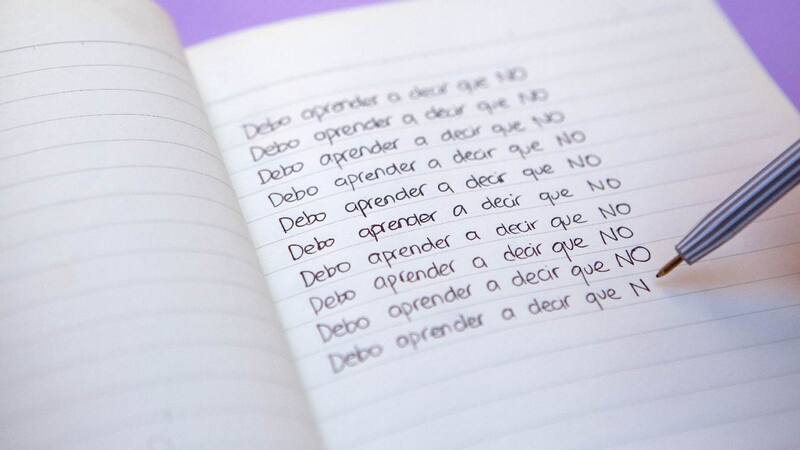 Debo aprender a decir que NO
Debo aprender a decir que NO
Debo aprender a decir que NO
Debo aprender a decir que NO
Debo aprender a decir que NO
Debo aprender a decir que NO
Debo aprender a decir que NO
Debo aprender a decir que NO
Debo aprender a decir que NO
Debo aprender a decir que N